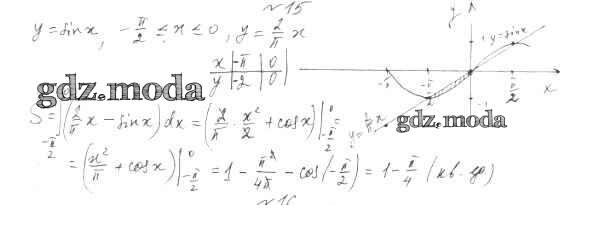 №15
y = sinx, -π/2 ≤ x ≤ 0, y = 2/π x
x | -π | 0
y | -2 | 0
y
1 y=sinx
-π -π/2 π/2 x
-1
y = 2/π x
gdz.moda
gdz.moda
S = ∫_{-π/2}^{0} (2/π x - sinx) dx = (2/π · x²/2 + cosx) |_{-π/2}^{0} =
= (x²/π + cosx) |_{-π/2}^{0} = 1 - π²/4π - cos(-π/2) = 1 - π/4 (кв. ед)